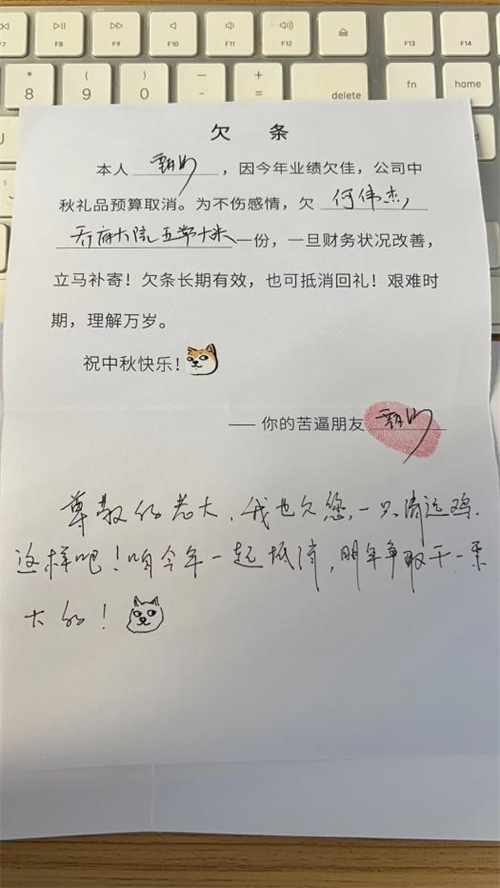 F7
F8
F9
F10
F11
F12
F13
F14
F15
* 8
( 9
) 0
delete
fn
home
欠 条
本人,因今年业绩欠佳,公司中
秋礼品预算取消。为不伤感情,欠 何伟杰,
乔府大院五常大米一份,一旦财务状况改善,
立马补寄!欠条长期有效,也可抵消回礼!艰难时
期,理解万岁。
祝中秋快乐!
—— 你的苦逼朋友
尊敬的老大,我也欠您一只清远鸡.
这样吧!咱今年一起抵消,明年争取干一票
大的!